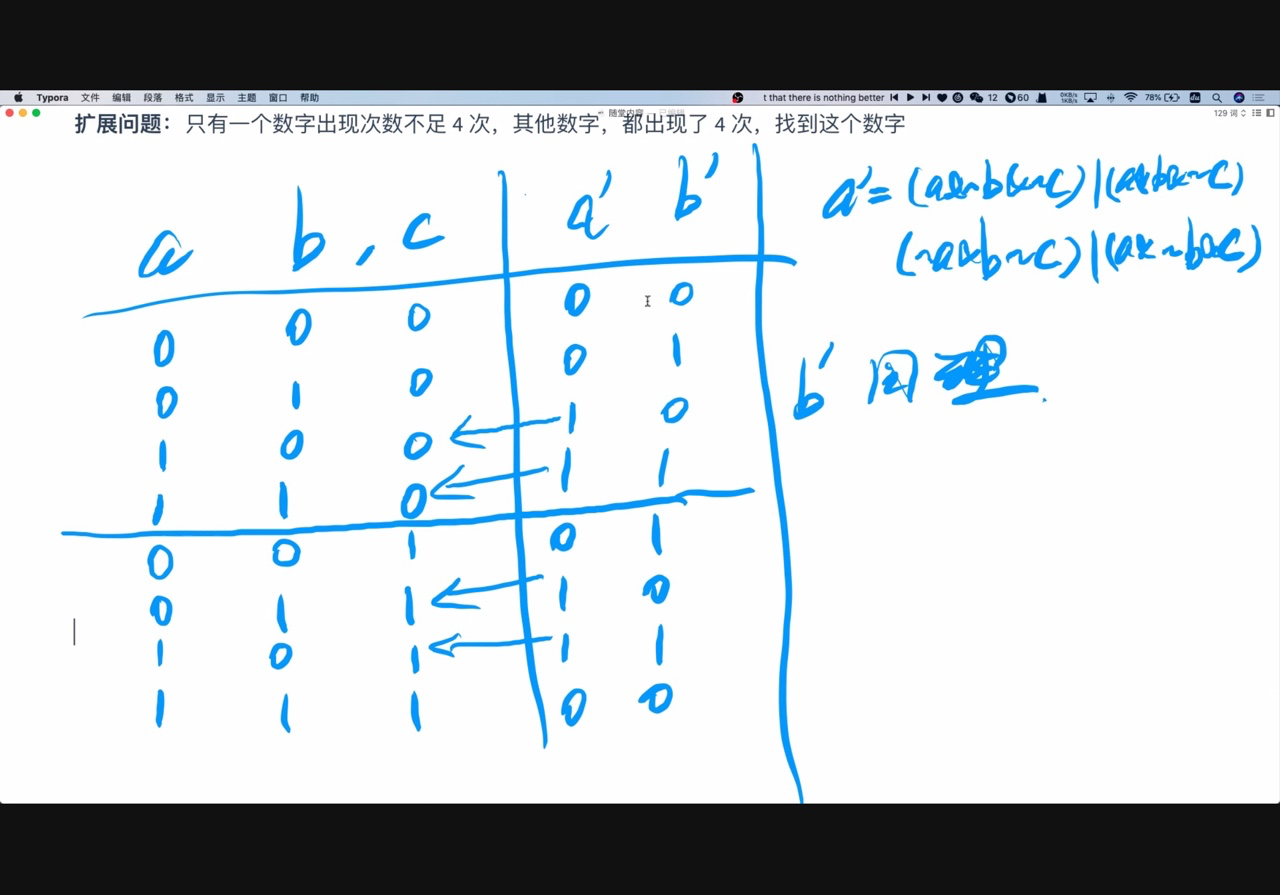 Typora 文件 编辑 段落 格式 显示 主题 窗口 帮助 t that there is nothing better 12 60 0KB/s 1KB/s 78%
随堂内容 — 已编辑 129 词
扩展问题：只有一个数字出现次数不足 4 次，其他数字，都出现了 4 次，找到这个数字
a b , c a' b'
0 0 0 0 0
0 1 0 0 1
1 0 0 1 0
1 1 0 1 1
0 0 1 0 1
0 1 1 1 0
1 0 1 1 1
1 1 1 0 0
a'= (a&~b&~c)|(a&b&~c)
(~a&b~c)|(a&~b&c)
b' 同理